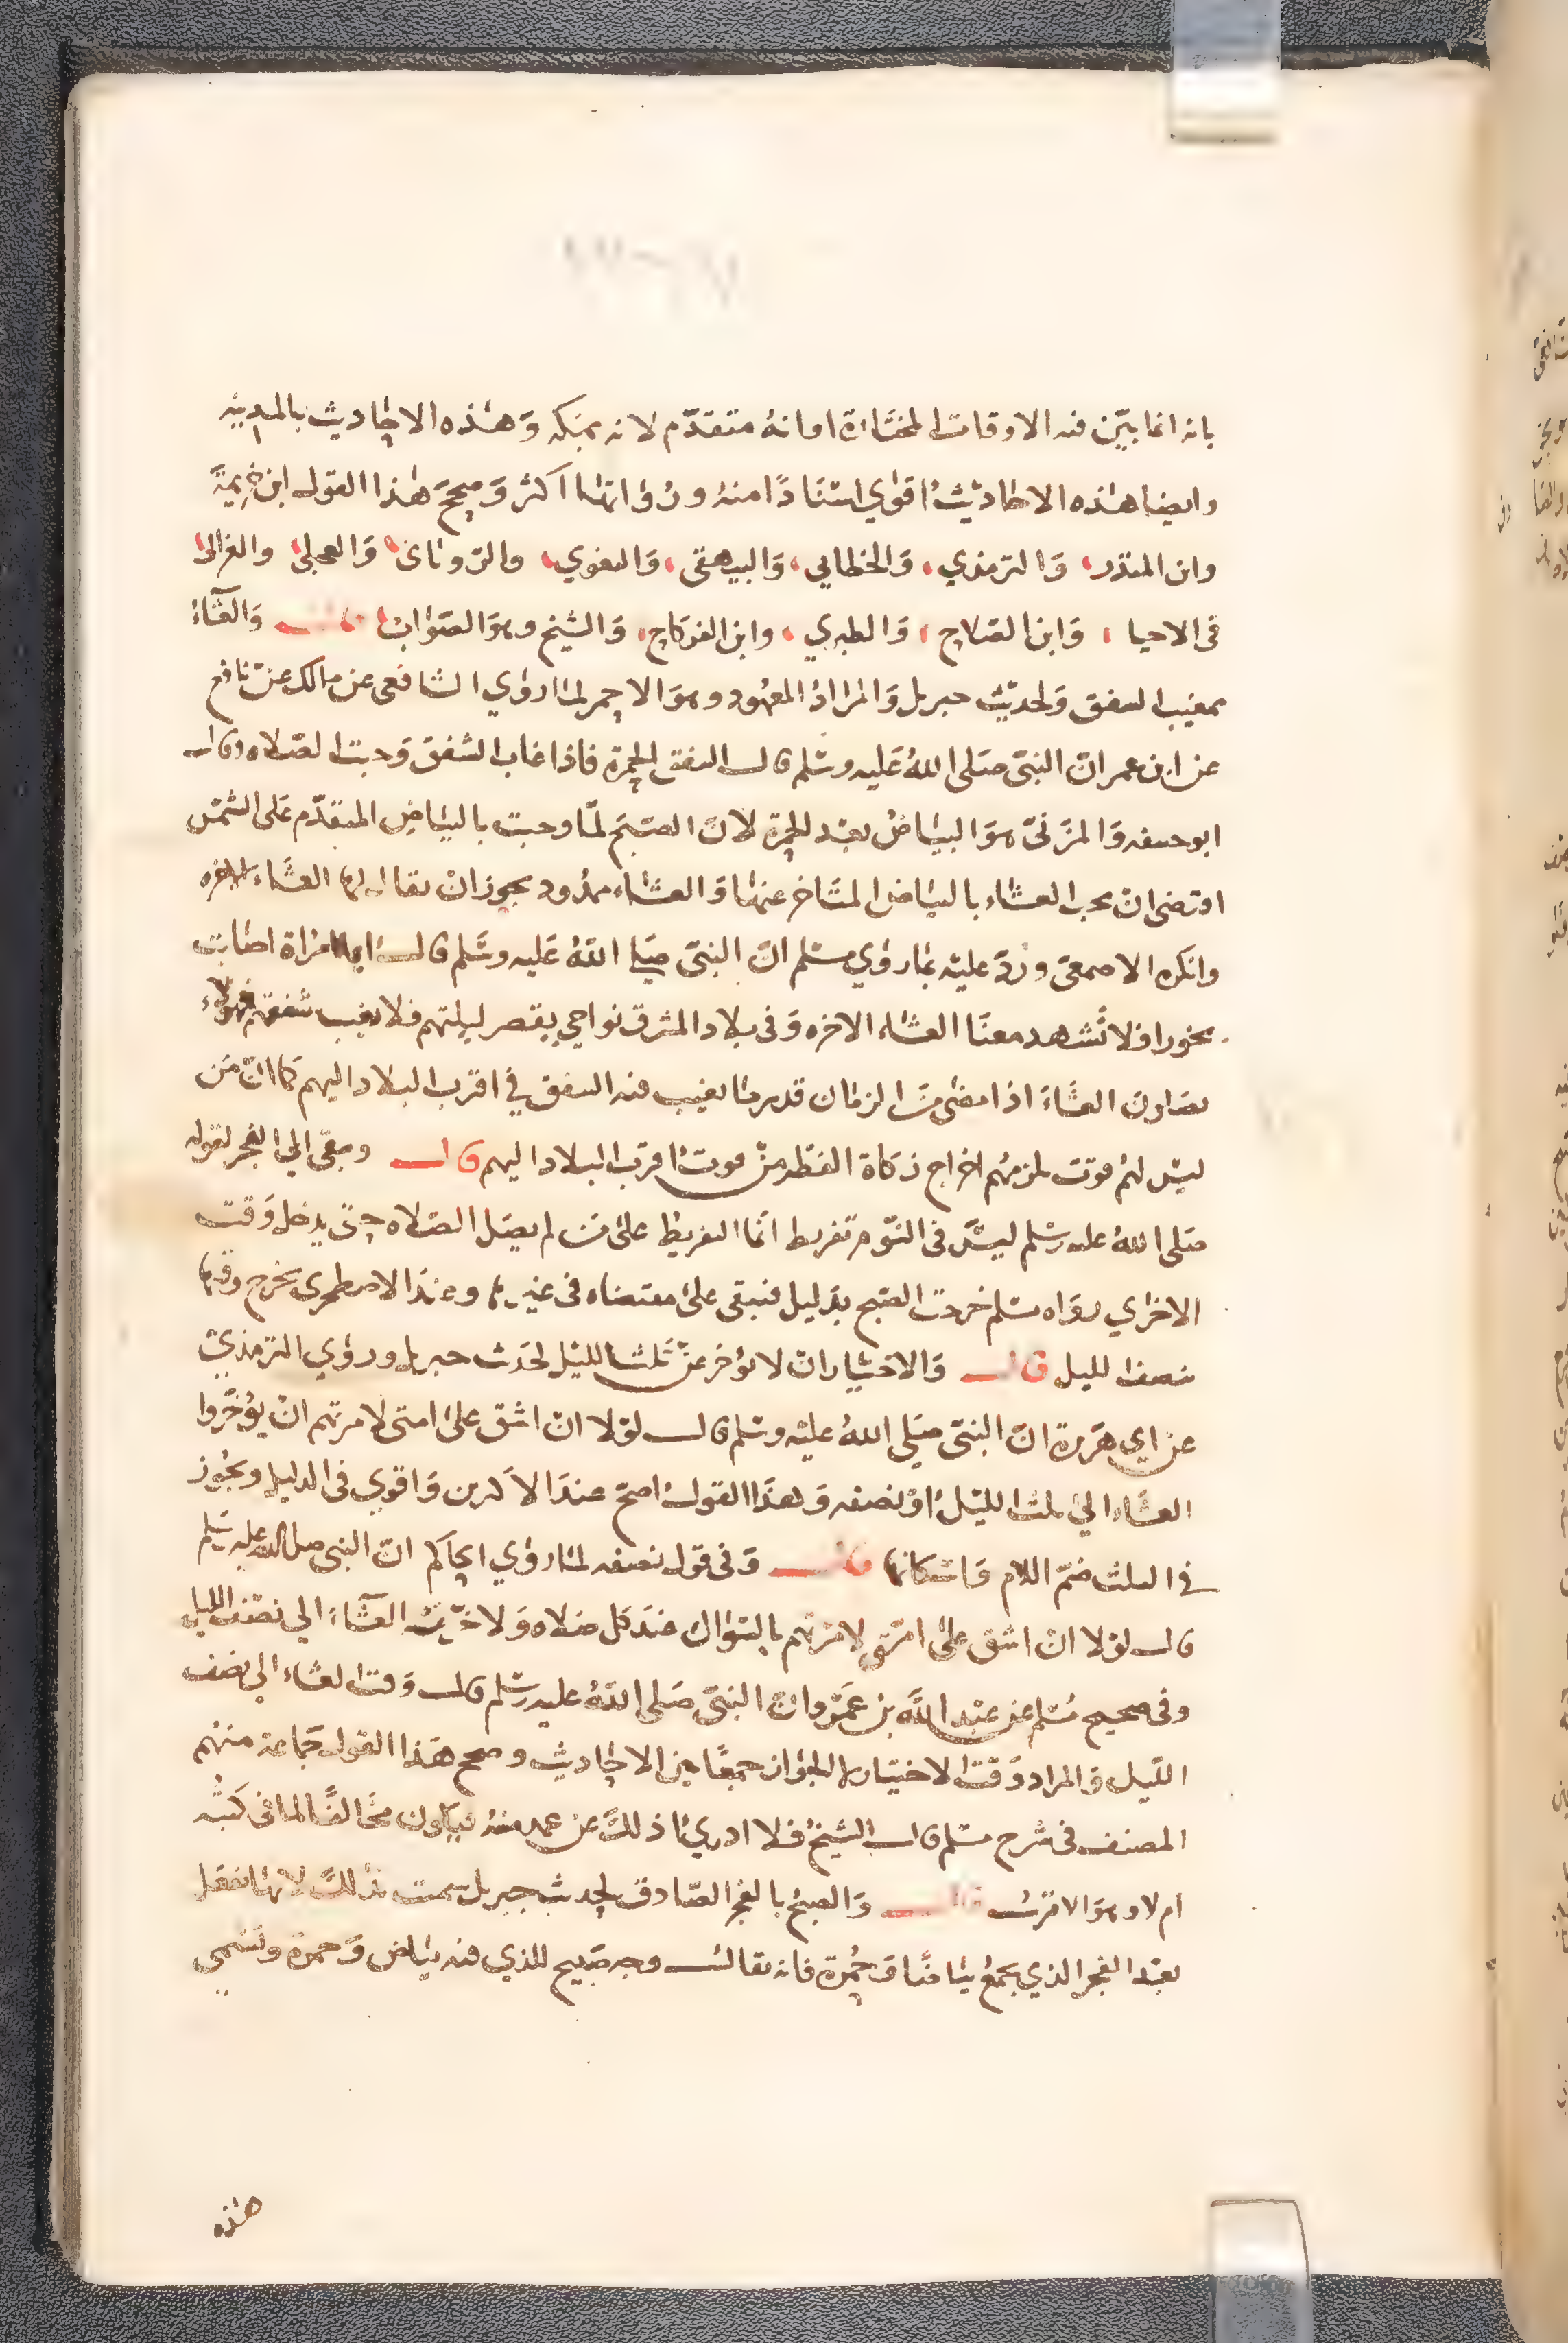 بانه انما بيّن فيه الاوقات المختارة او انه متقدّم لانه بمكه وَهٰذه الاحاديث بالمدينه
وايضا هٰذه الاحاديث اقوي اسْنَادًا منهُ ورُوَاتها اكثر وَصححَ هٰذا القول ابن خزيمَة
وابن المنذر، وَالترمذي، وَالخطابي، وَالبيهقى، وَالبغوي، والرّويانى، وَالعجلي، والغزالى
فى الاحيا، وَابن الصّلاح، وَالطبري، وابن الفركاح، وَالشيخ وهوَ الصّواب قال وَالعشَاءُ
بمغيب الشفق وَلحديث جبريل وَالمرَادُ المعهُود وهوَ الاحمر لما روٰي الشافعى عن مالك عن نافع
عن ابن عمر ان النبيّ صَلى اللهُ عَليه وسَلم قال الشفق الحمرة فاذا غاب الشفق وَجبت الصّلاه وقال
ابو حنيفه وَالمزَنىّ هوَ البيَاضُ بعْد الحمرة لانّ الصّبحَ لمّا وجبت بالبيَاض المتقدّم عَلى الشمْس
اقتضى انْ تجب العشاء بالبيَاض المتَاخر عنها وَالعشَاء ممدُود يجوز انْ يقال لها العشَاء الاخره
وانكره الاصمعىّ وردّ عليْه بمَا روٰي مسْلم انّ النبىّ صَلي اللهُ عَليه وسَلم قال ايما امراة اصَابت
بخورا فلا تَشهد معنَا العشاء الاخره وَفى بلاد المشرق نواحي يقصر ليلتهم فلا يغيب شفقهم فهؤلاء
يصَلون العشَاءَ اذا مضٰى منَ الزمَان قدر مَا يغيب فيه الشفق في اقرب البلاد اليهم كمَا انّ مَن
ليسَ لهُمْ قوت يلزمهُم اخراج زكاة الفطر منْ قوت اقرب البلاد اليهم قال ويبقى الي الفجر لقوله
صَلى اللهُ عليه وسَلم ليسَ فى النّوم تفريط انّمَا التفريط علىٰ مَن لم يصَل الصّلاه حتى يدخل وَقت
الاخرٰي روَاه مسْلم خرجت الصّبح بدليل فتبقى علىٰ مقتضاه فى غيرها وعندَ الاصطخرى يخرج وقتها
بنصف الليل قال وَالاختيَار انْ لا تؤخر عنْ ثلث الليْل لحَديث جبريل وروٰي الترمذيّ
عن ابي هَريرة انّ النبيّ صَلي اللهُ عليْه وسَلم قال لوْلا انْ اشق علىٰ امتى لامرتهم انْ يؤخّروا
العشَاء الىٰ ثلث الليْل اوْ نصفه وَهذَا القولُ اصحّ عندَ الاكثرين وَاقوي فى الدليل ويجُوز
في الثلث ضمّ اللام وَاسْكانها قال وَفى قول نصفه لمَا روٰي الحاكم انّ النبى صلى الله عليه وسَلم
قال لوْلا انْ اشق علىٰ امّتي لامرتهم بالسّواك عندَ كل صَلاه وَلاخّرت العشَاءَ الي نصْف الليل
وفى صحيح مُسْلم عن عبْد اللَّه بن عَمْرو انّ النبىّ صَلى اللهُ عليه وسَلم قال وَقت العشاء الي نصف
الليل وَالمراد وَقت الاختيَار لا الجوَاز جمعًا بين الاحاديث وصحح هَذا القول جَماعة منهُم
المصنف فى شرح مسْلم قال الشيخُ فلا ادري اذلكَ عن عمد منهُ فيكون مخَالفًا لما فى كتبُه
ام لا وهوَ الاقربُ قال وَالصبحُ بالفجر الصّادق لحديث جبريل سميت بذلكَ لانها تفعَل
بعْد الفجر الذي يجمعُ بيَاضًا وَحُمرة فانه يقالُ وجه صَبيح للذي فيه بيَاض وَحمرة وتسَمى
هٰذه